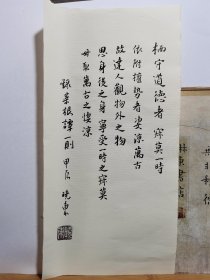 栖守道德者寂莫一時
依附權勢者淒涼萬古
故達人觀物外之物
思身後之身寧受一時之寂莫
毋取萬古之淒涼
錄菜根譚一則 甲辰 曉